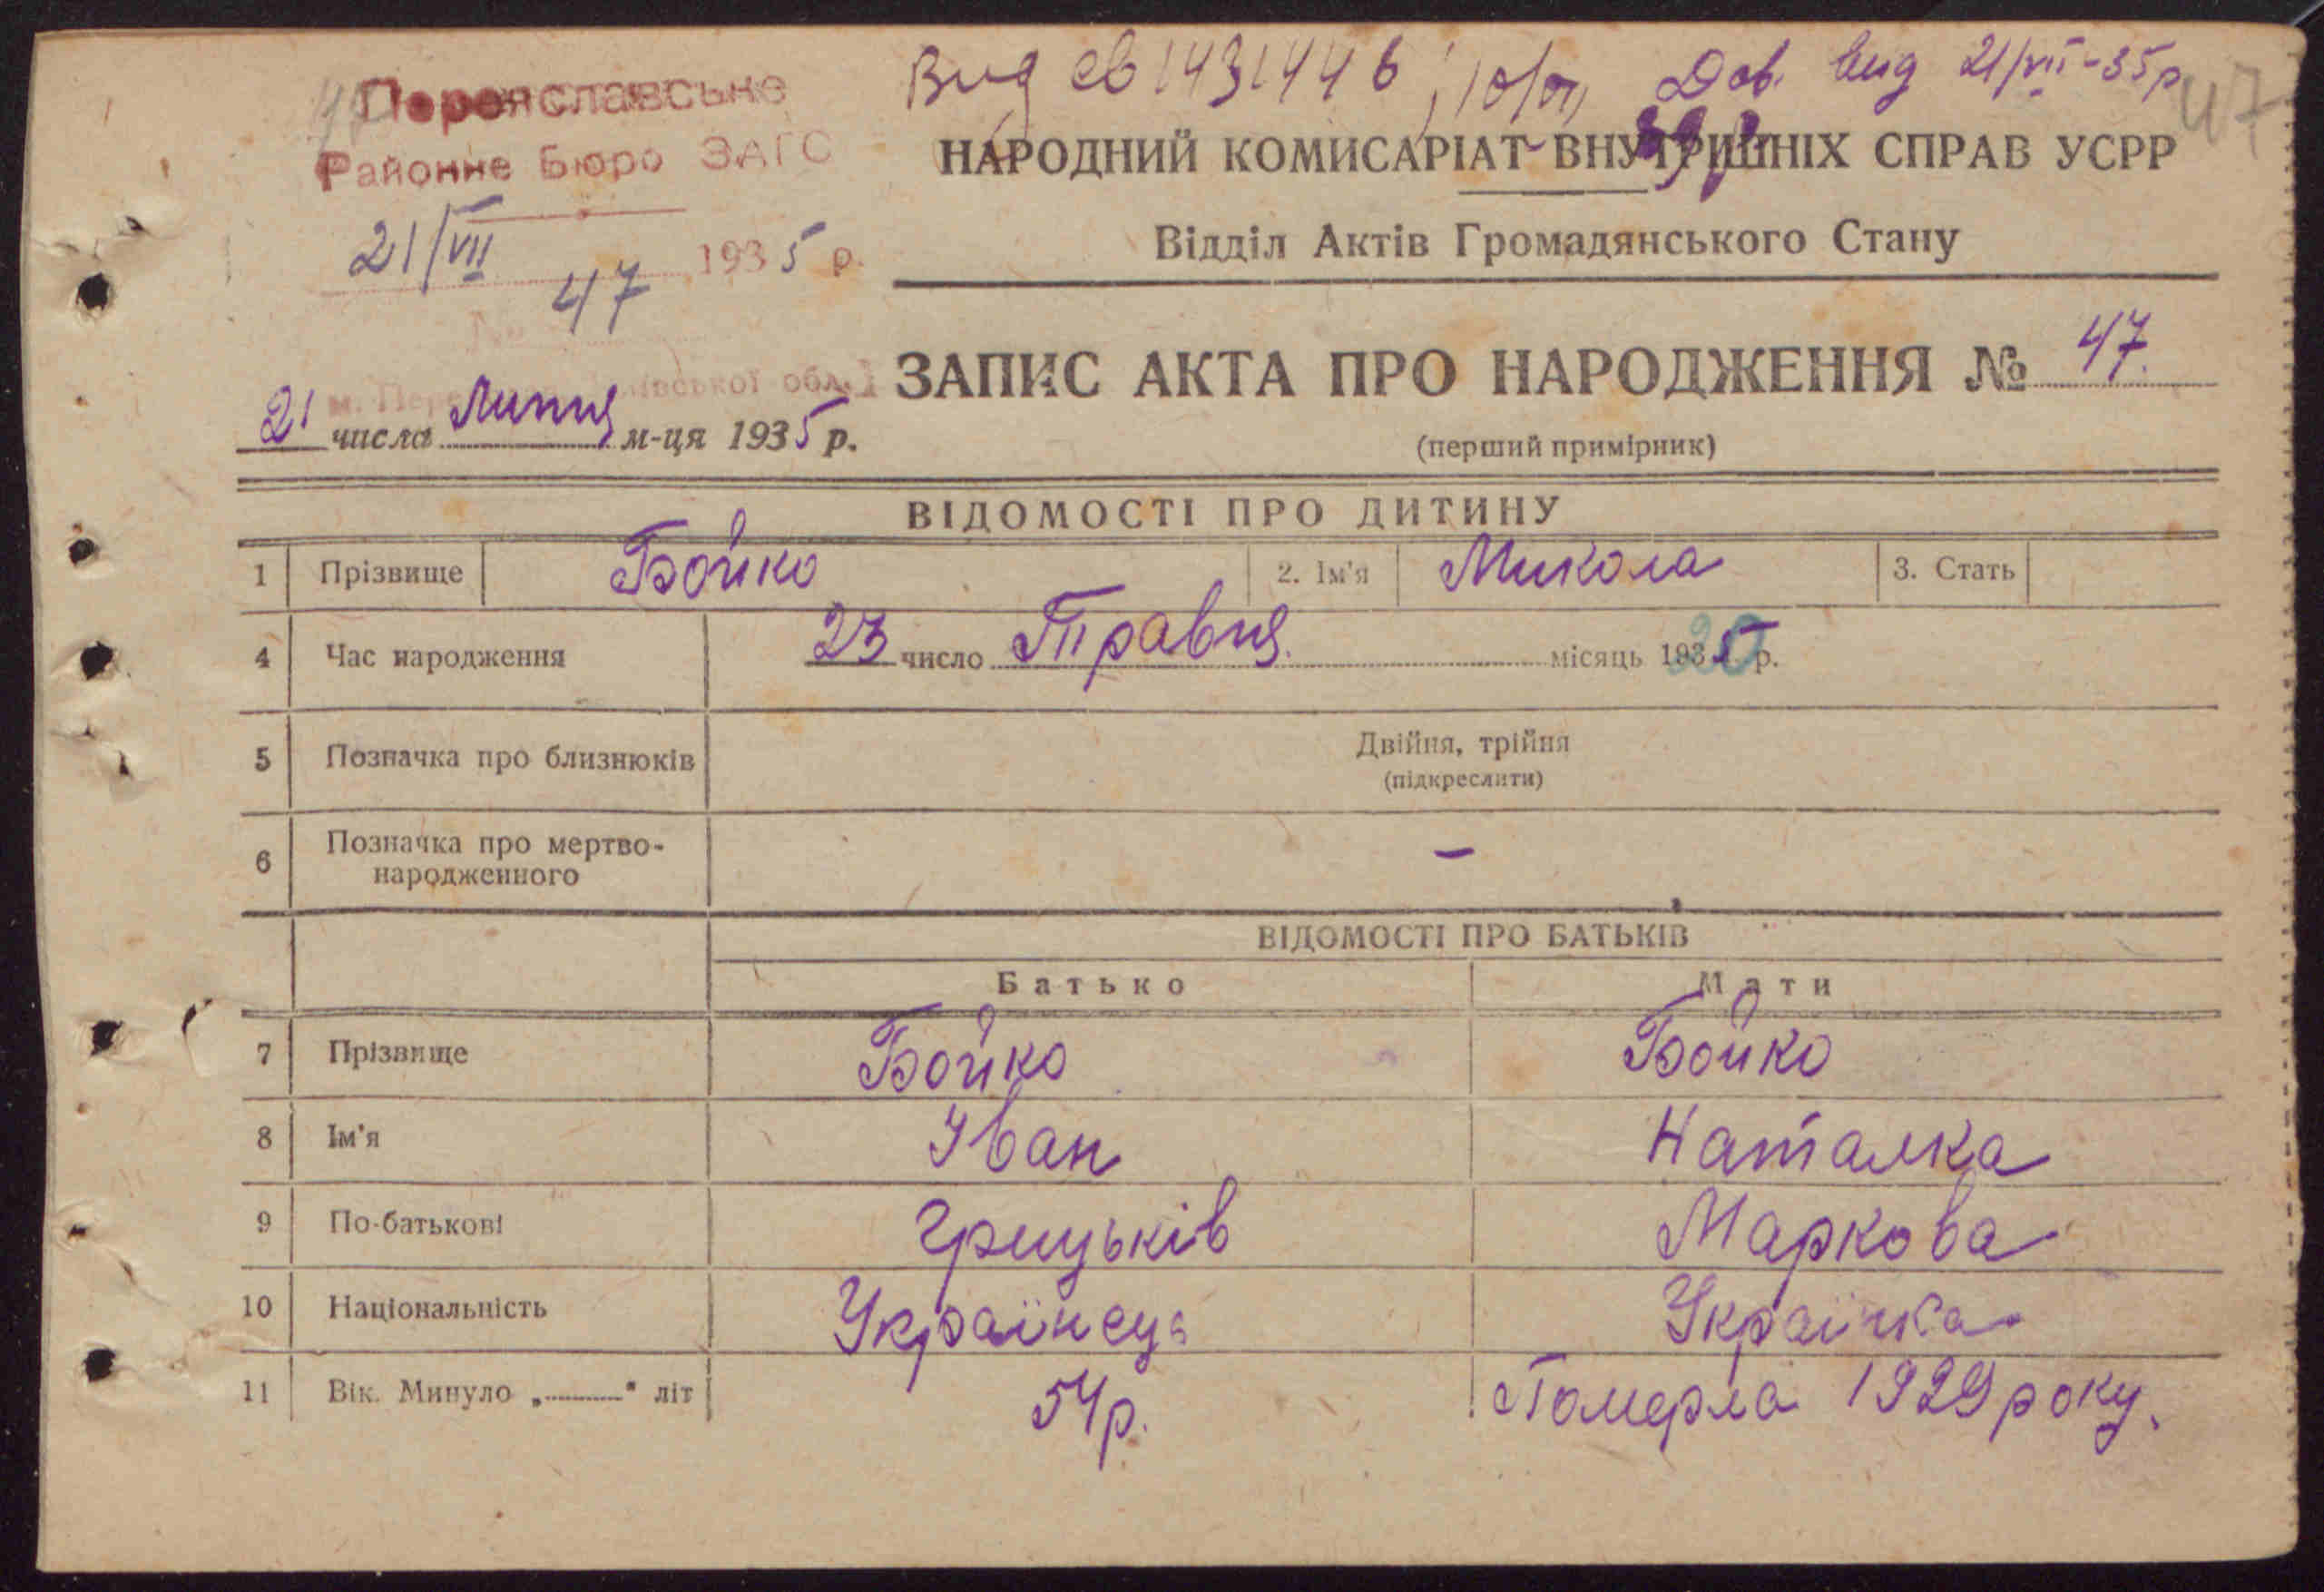 Переяславське
Районне Бюро ЗАГС
21/VII 1935 р.
47
Вид св 1431446, Дов. вид 21/VII-35р
47
НАРОДНИЙ КОМИСАРІАТ ВНУТРІШНІХ СПРАВ УСРР
Відділ Актів Громадянського Стану
ЗАПИС АКТА ПРО НАРОДЖЕННЯ № 47.
(перший примірник)
21 числа Липня м-ця 1935 р.
ВІДОМОСТІ ПРО ДИТИНУ
1 Прізвище Бойко 2. Ім'я Микола 3. Стать
4 Час народження 23 число Травня. місяць 193 р.
5 Позначка про близнюків Двійня, трійня
(підкреслити)
6 Позначка про мертво-
народженного –
ВІДОМОСТІ ПРО БАТЬКІВ
Батько Мати
7 Прізвище Бойко Бойко
8 Ім'я Іван Наталка
9 По-батькові Грицьків Маркова
10 Національність Українець Українка
11 Вік. Минуло „ " літ 54р. Померла 1929 року.